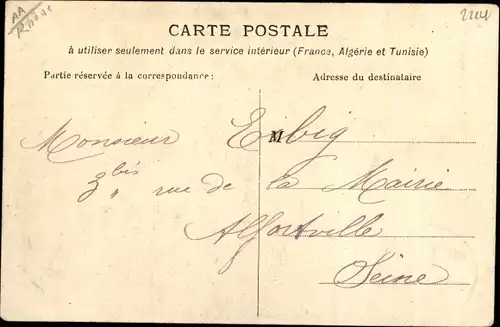 AA
Rhône
CARTE POSTALE
à utiliser seulement dans le service intérieur (France, Algérie et Tunisie)
Partie réservée à la correspondance:
Adresse du destinataire
M
Monsieur Erbig
3 bis rue de la Mairie
Alfortville
Seine